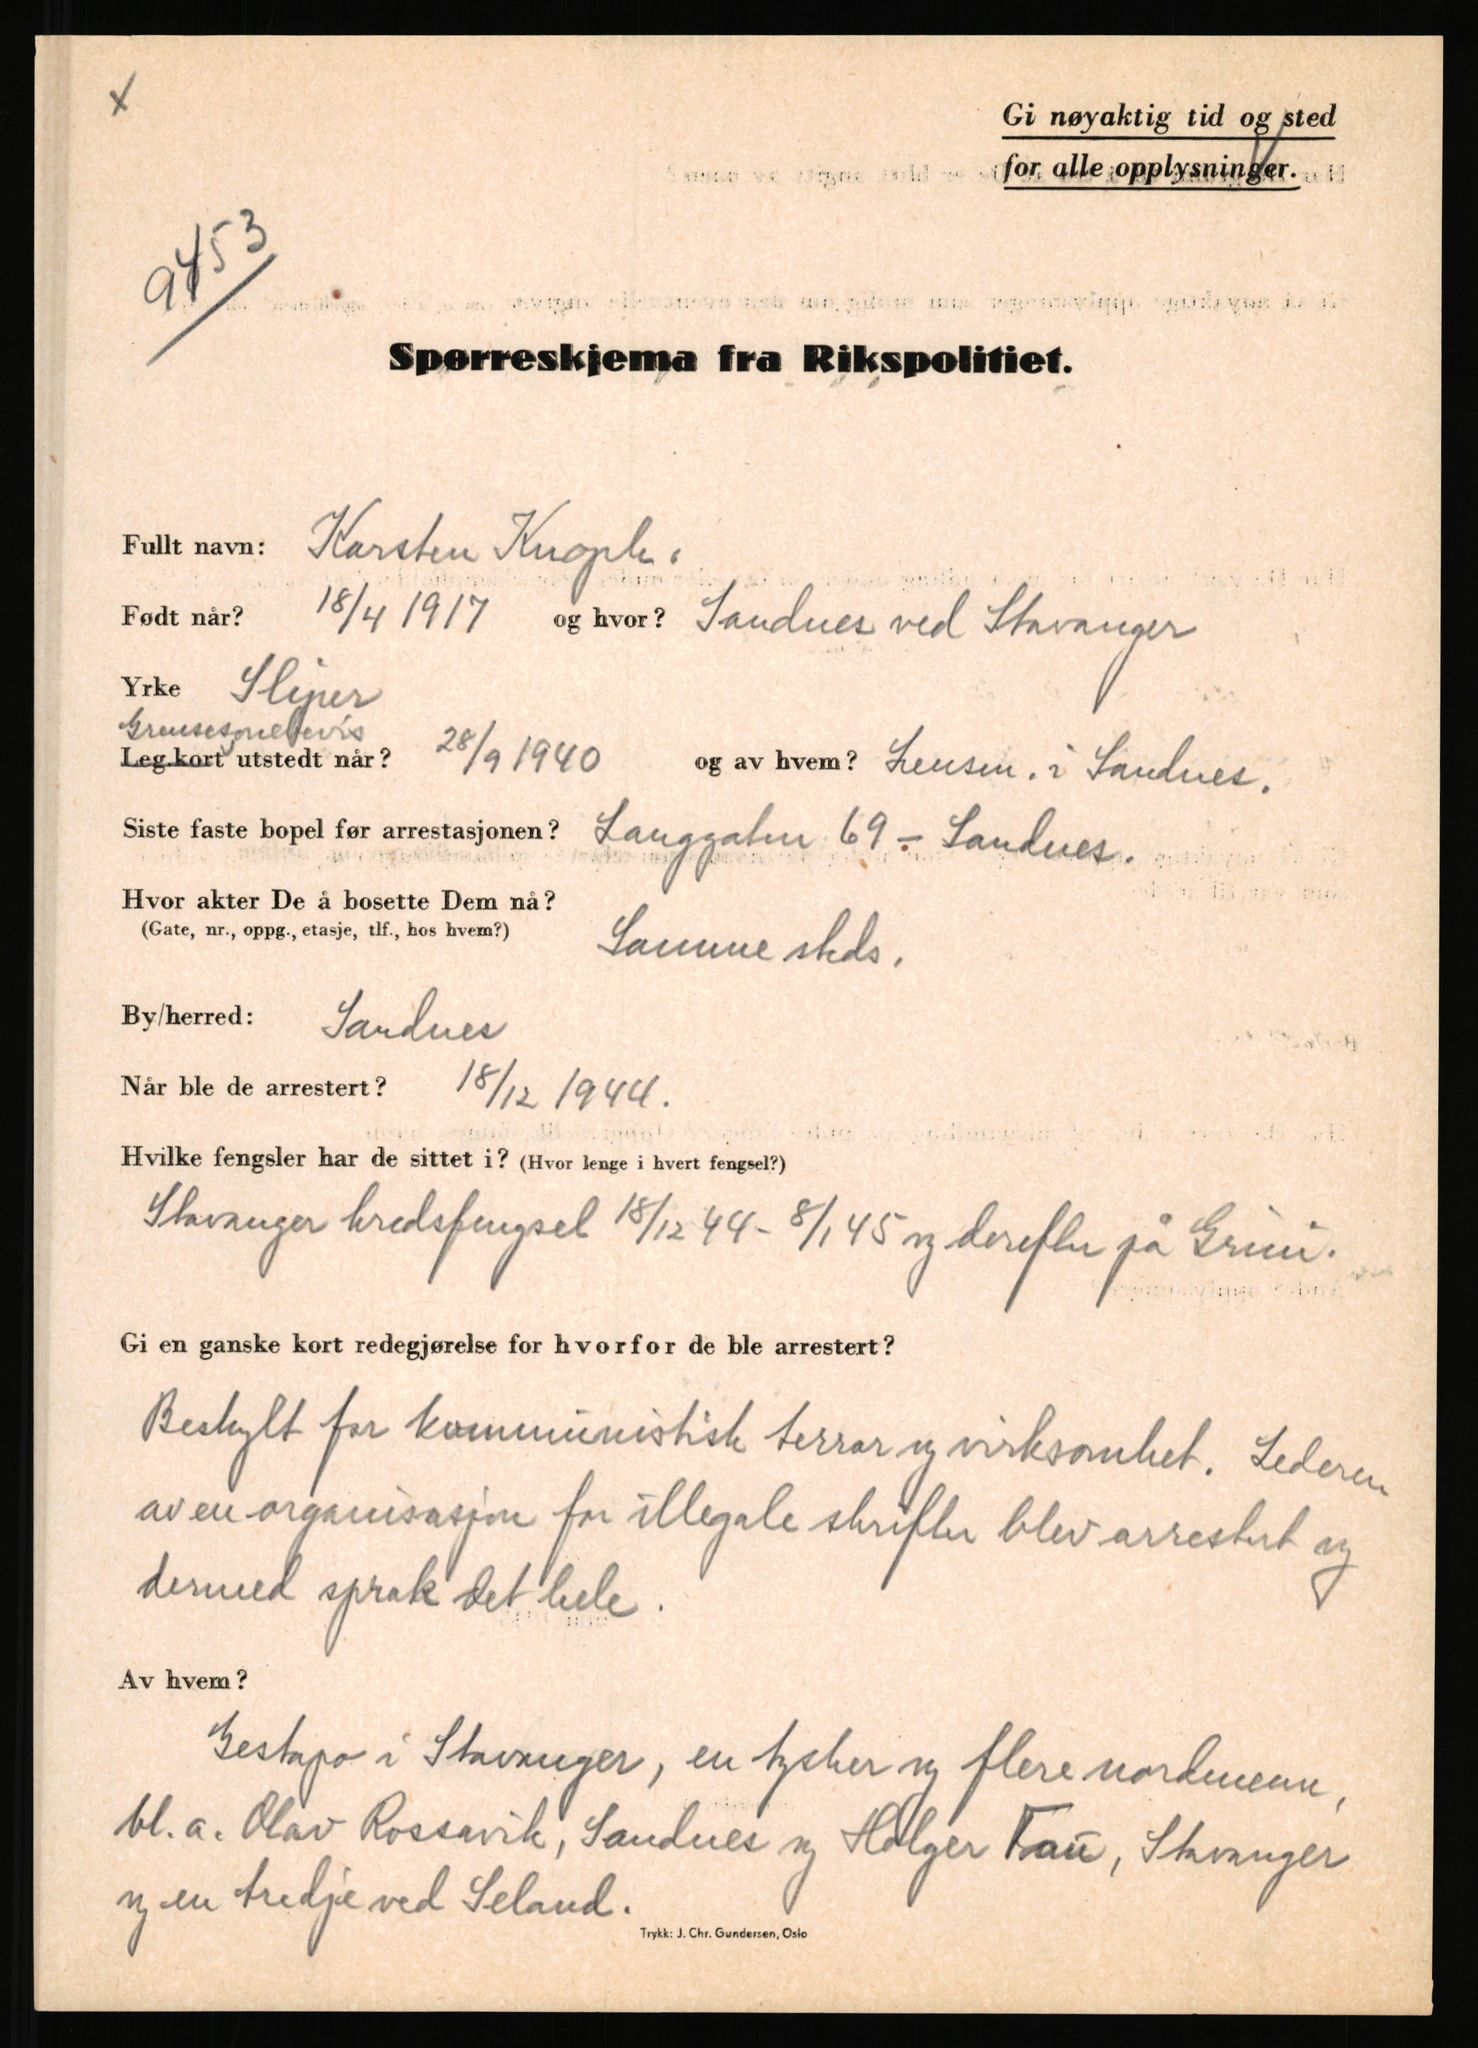 x
Gi nøyaktig tid og sted
for alle opplysninger.
9453
Spørreskjema fra Rikspolitiet.
Fullt navn: Karsten Knoph.
Født når? 18/4 1917 og hvor? Sandnes ved Stavanger
Yrke Sliper
Grensesonebevis
Leg.kort utstedt når? 28/9 1940 og av hvem? Lensm. i Sandnes.
Siste faste bopel før arrestasjonen? Langgaten 69 - Sandnes.
Hvor akter De å bosette Dem nå?
(Gate, nr., oppg., etasje, tlf., hos hvem?) Samme steds.
By/herred: Sandnes
Når ble de arrestert? 18/12 1944.
Hvilke fengsler har de sittet i? (Hvor lenge i hvert fengsel?)
Stavanger kredsfengsel 18/12 44 - 8/1 45 og derefter på Grini.
Gi en ganske kort redegjørelse for hvorfor de ble arrestert?
Beskylt for kommunistisk terror og virksomhet. Lederen
av en organisasjon for illegale skrifter blev arrestert og
dermed sprak det hele.
Av hvem?
Gestapo i Stavanger, en tysker og flere nordmenn,
bl. a. Olav Rossavik, Sandnes og Holger Tou, Stavanger
og en tredje ved Seland.
Trykk: J. Chr. Gundersen, Oslo